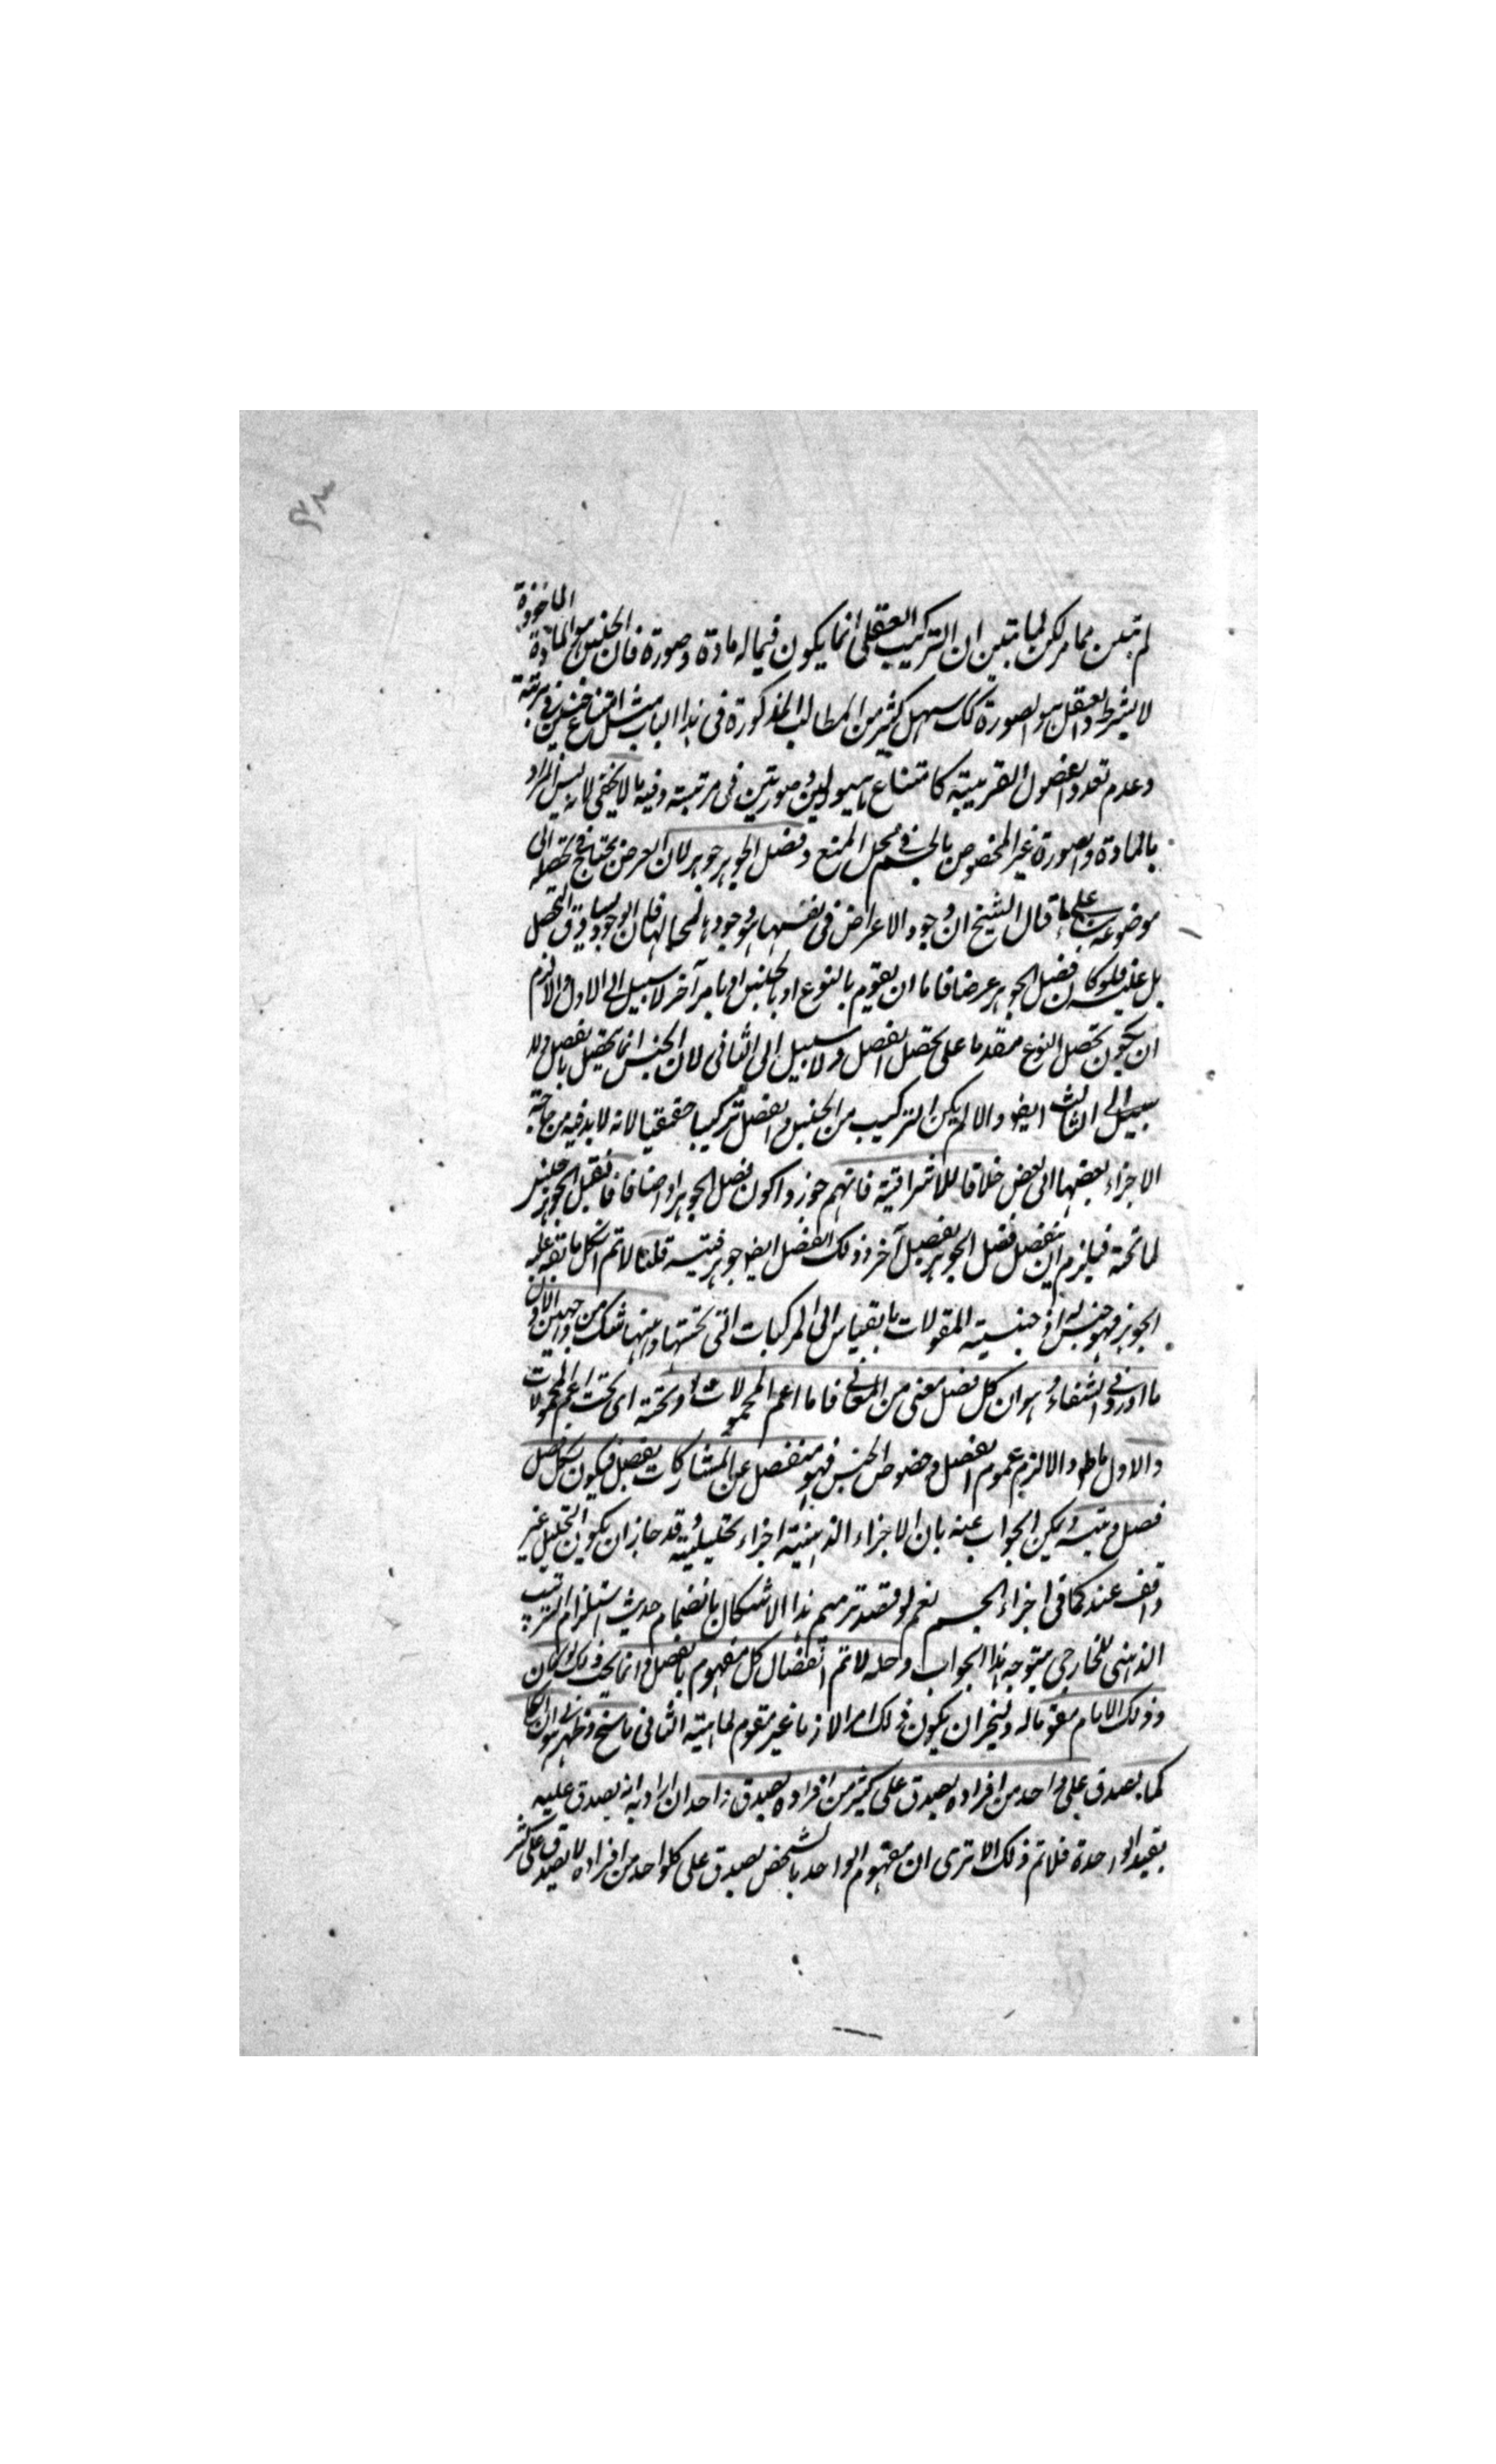 لم تبين مما مر لكن لما تبين ان التركيب العقلى انما يكون فيما له مادة وصورة فان الجنس هو المادة الماخوذة
لا بشرط والفصل هو الصورة كك سهل كثير من المطالب المذكورة فى هذا الباب مثل امتناع جنسين فى مرتبة
وعدم تعدد الفصول القريبة كامتناع هيولين وصورتين فى مرتبة وفيه ما لا يخفى لانه ليس المراد
بالمادة والصورة غير المخصوص بالجسم فى محل المنع وفصل الجوهر جوهر لان العرض يحتاج فى تحصله الى
موضوعه بناء على ما قال الشيخ ان وجود الاعراض فى نفسها هو وجودها لمحالها فان الوجود يساوق التحصل
بل عينه فلو كان فصل الجوهر عرضا فاما ان يقوم بالنوع او بالجنس او بامر آخر لا سبيل الى الاول والا لزم
ان يكون تحصل النوع مقدما على تحصل الفصل ولا سبيل الى الثانى لان الجنس انما يتحصل بالفصل ولا
سبيل الى الثالث ايضا والا لم يكن التركيب من الجنس والفصل تركيبا حقيقيا لانه لا بد فيه من حاجة
الاجزاء بعضها الى بعض خلافا للاشراقية فانهم جوزوا كون فصل الجوهر اعراضا فان قيل الجوهر جنس
لما تحته فيلزم ان ينفصل فصل الجوهر بفصل آخر وذلك الفصل ايضا جوهر فيتسلسل قلنا لا تم ان كل ما تقع عليه
الجوهر فهو جنس له اذ جنسية المقولات بالقياس الى المركبات التى تحتها وههنا شك من جهتين الاول
ما اورد فى الشفاء وهو ان كل فصل معنى من المعانى فاما اعم المحمولات او تحته اى تحت اعم المحمولات
والاول باطل والا لزم عموم الفصل وخصوص الجنس فهو منفصل عن المشاركات بفصل فيكون لكل فصل
فصل ويتسلسل ويمكن الجواب عنه بان الاجزاء الذهنية اجزاء تحليلية وقد جاز ان يكون التحليل غير
واقف عند كما فى اجزاء الجسم نعم لو قصد ترميم هذا الاشكال بانضمام حديث استلزام التركيب
الذهنى للخارجى يتوجه هذا الجواب وحله لا تم انفصال كل مفهوم بالفصل وانما يجب ذلك لو كان
ذلك العام مقوما له ولينجر ان يكون ذلك امرا لازما غير مقوم لماهيته الثانى ما سنح وظهر لى هو ان الكلى
كما يصدق على واحد من افراده يصدق على كثير من افراده بصدق واحد ان اراد به انه يصدق عليه
بقيد الوحدة فلا تم ذلك الا ترى ان مفهوم الواحد بالشخص يصدق على كل واحد من افراده ولا يصدق على كثير